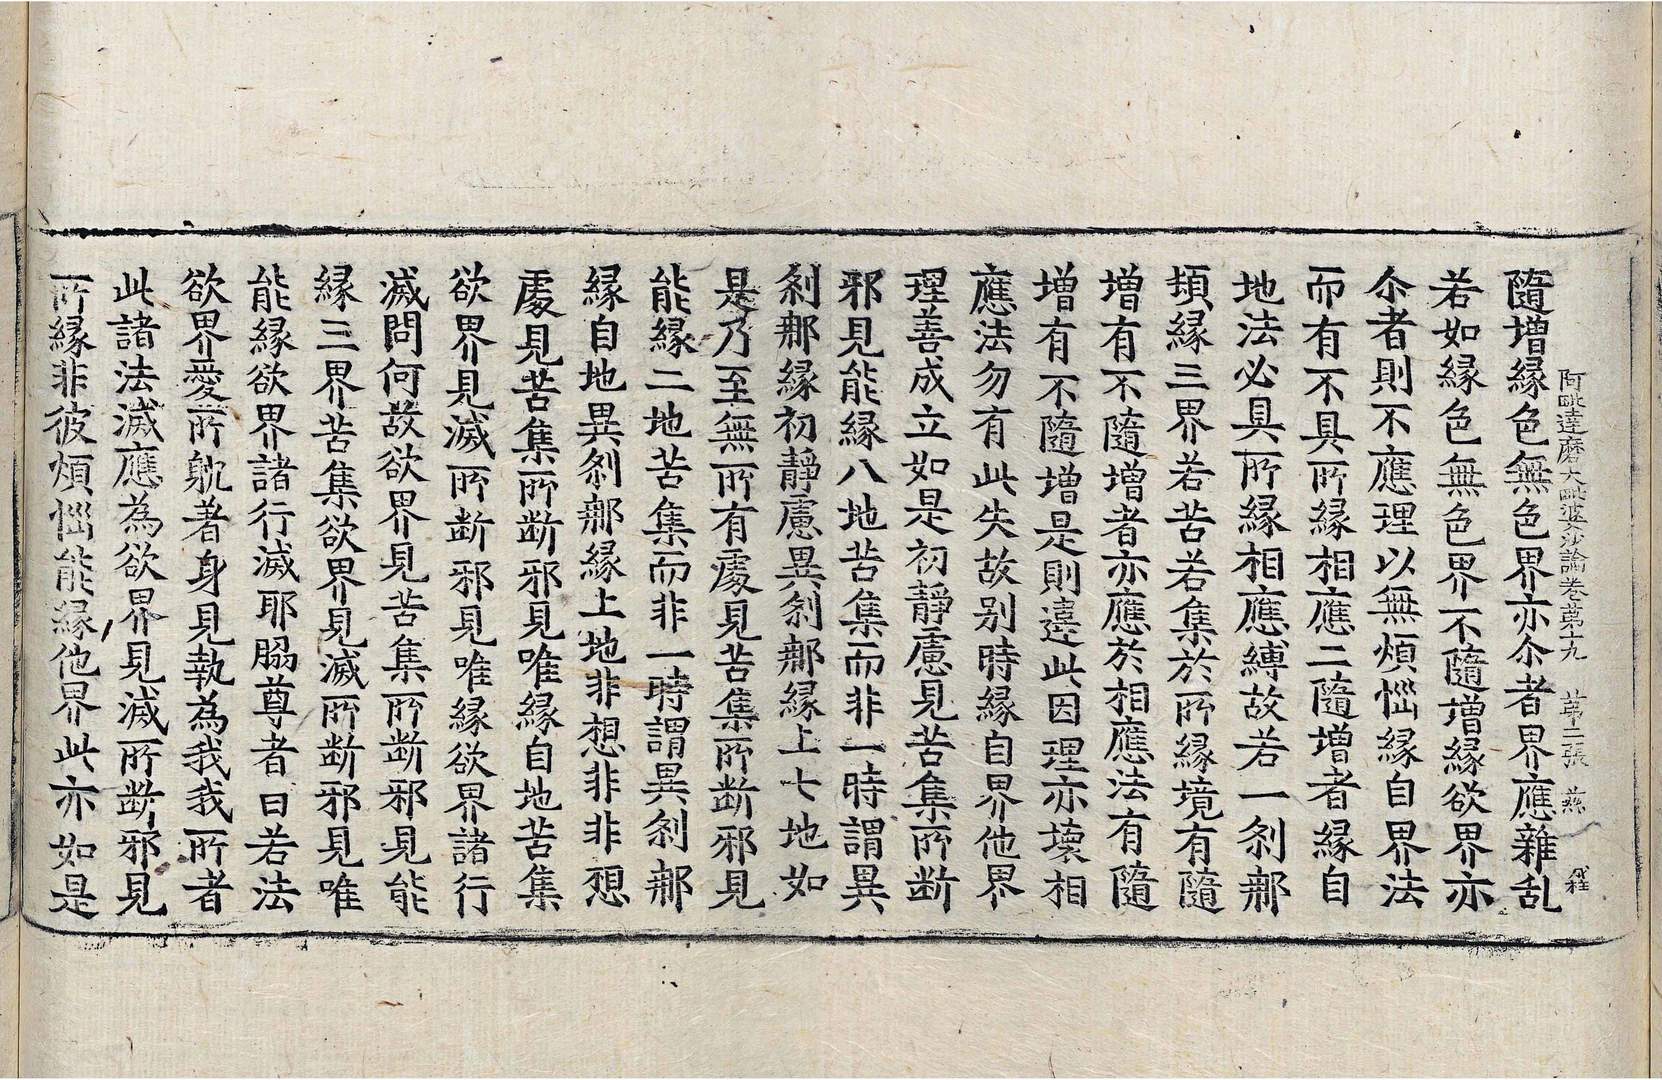 阿毗達磨大毗婆沙論卷苐十九　苐二張　䒳
隨增緣色無色界亦尒者界應雜乱
若如緣色無色界不隨增緣欲界亦
尒者則不應理以無煩惱緣自界法
而有不具所緣相應二隨增者緣自
地法必具所緣相應縛故若一刹那
頓緣三界若苦若集於所緣境有隨
增有不隨增者亦應於相應法有隨
增有不隨增是則違此因理亦壞相
應法勿有此失故別時緣自界他界
理善成立如是初靜慮見苦集所断
邪見能緣八地苦集而非一時謂異
刹那緣初靜慮異刹那緣上七地如
是乃至無所有處見苦集所断邪見
能緣二地苦集而非一時謂異刹那
緣自地異刹那緣上地非想非非想
處見苦集所断邪見唯緣自地苦集
欲界見滅所断邪見唯緣欲界諸行
滅問何故欲界見苦集所断邪見能
緣三界苦集欲界見滅所断邪見唯
能緣欲界諸行滅耶脇尊者曰若法
欲界愛所躭著身見執為我我所者
此諸法滅應為欲界見滅所断邪見
所緣非彼煩惱能緣他界此亦如是